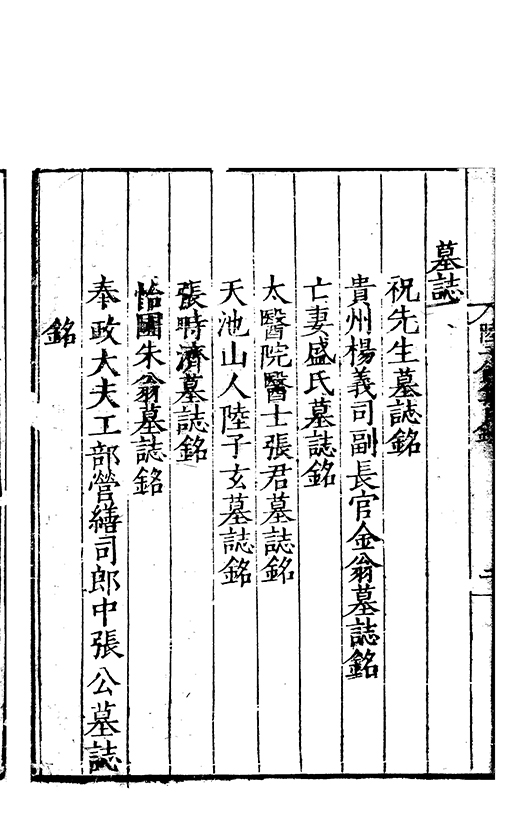 墓誌
祝先生墓誌銘
貴州楊義司副長官金翁墓誌銘
亡妻盛氏墓誌銘
太醫院醫士張君墓誌銘
天池山人陸子玄墓誌銘
張時濟墓誌銘
怡園朱翁墓誌銘
奉政大夫工部營繕司郎中張公墓誌
銘